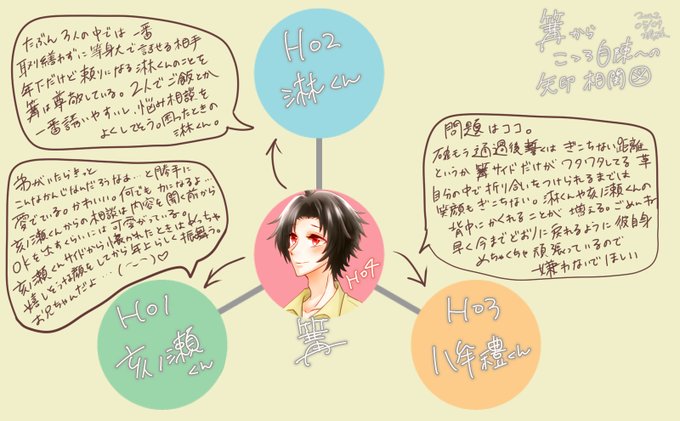 篝から
こころ自陣への
矢印相関図
2022
05/09
たぶん3人の中では一番
取り繕わずに等身大で話せる相手
年下だけど頼りになる淋くんのことを
篝は尊敬している。2人でご飯とか
一番誘いやすいし、悩み相談を
よくしてそう。困ったときの
淋くん。
HO2
淋くん
弟がいたらきっと
こんなかんじなんだろうなぁ…と勝手に
愛でている。かわいい。何でも力になるよ…
亥ノ瀬くんからの相談は内容を聞く前から
OKを出すくらいには可愛がっている。
亥ノ瀬くんサイドから懐かれたときはめっちゃ
嬉しそうな顔をしてから年上らしく振舞う。
お兄ちゃんだよ…(ーーー)♡
問題はココ。
磋もう通過後暫くはぎこちない距離
というか篝サイドだけがワタワタしてる草
自分の中で折り合いをつけられるまでは
笑顔もぎこちない。淋くんや亥ノ瀬くんの
背中にかくれることが増える。ごめんね
早く今までどおりに戻れるように彼自身
めちゃくちゃ頑張っているので
嫌わないでほしい
HO4
篝
HO1
亥ノ瀬
くん
HO3
八牟禮くん